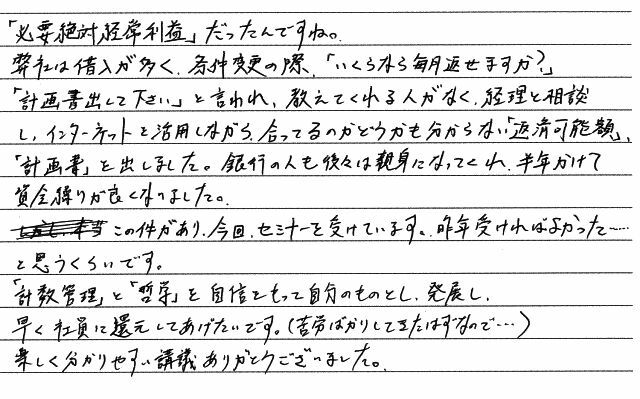 「必要絶対経常利益」だったんですね。
弊社は借入が多く、条件変更の際、「いくらなら毎月返せますか?」
「計画書出して下さい」と言われ、教えてくれる人がなく、経理と相談
し、インターネットを活用しながら、合ってるのかどうかも分からない「返済可能額」、
「計画書」を出しました。銀行の人も後々は親身になってくれ、半年かけて
資金繰りが良くなりました。
この件があり、今回、セミナーを受けています。昨年受ければよかった……
と思うくらいです。
「計数管理」と「哲学」を自信をもって自分のものとし、発展し、
早く社員に還元してあげたいです。(苦労ばかりしてきたはずなので…)
楽しく分かりやすい講議ありがとうございました。